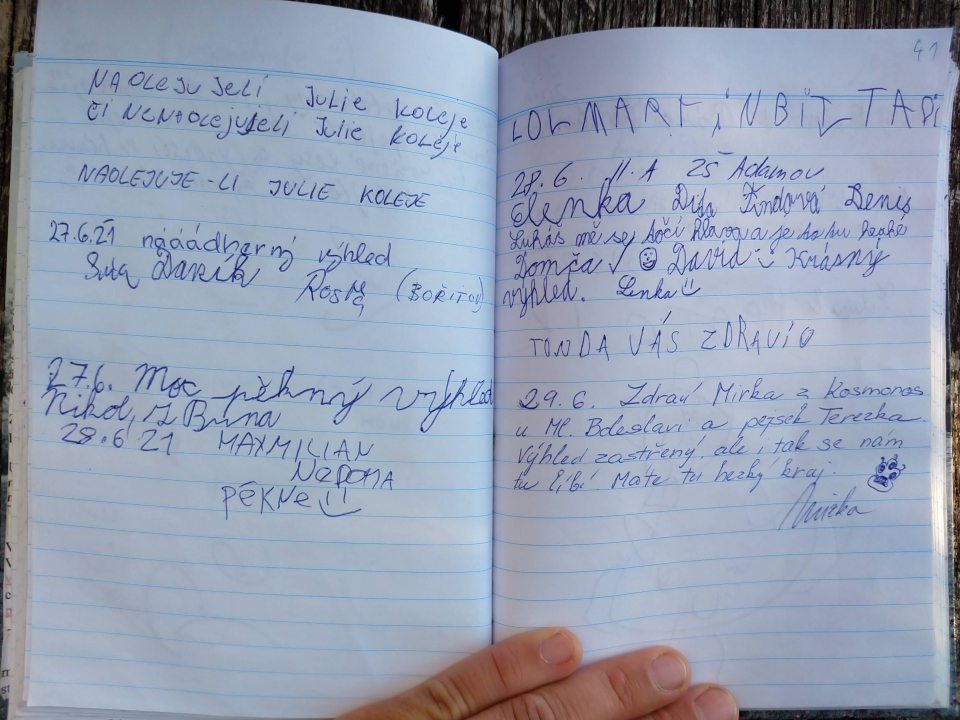 NAOLEJUJELI JULIE KOLEJE
ČI NENAOLEJUJELI JULIE KOLEJE
NAOLEJUJE-LI JULIE KOLEJE
27.6.21 nááádherný výhled
Darík
Rosťa (BOŘITOV)
27.6. Moc pěkný výhled
Nikol, Z Brna
28.6 21 MAXMILIAN
PĚKNE
41
28.6. II.A ZŠ Adamov
Elenka Denis
Lukáš mě se točí hlavou a je
Domča David Krásný
výhled. Lenka
TONDA VÁS ZDRAVÍ
29.6. Zdraví Mirka z Kosmonos
u Ml. Boleslavi a pejsek Terezka.
Výhled zastřený, ale i tak se nám
tu líbí. Máte tu hezký kraj.
Mirka